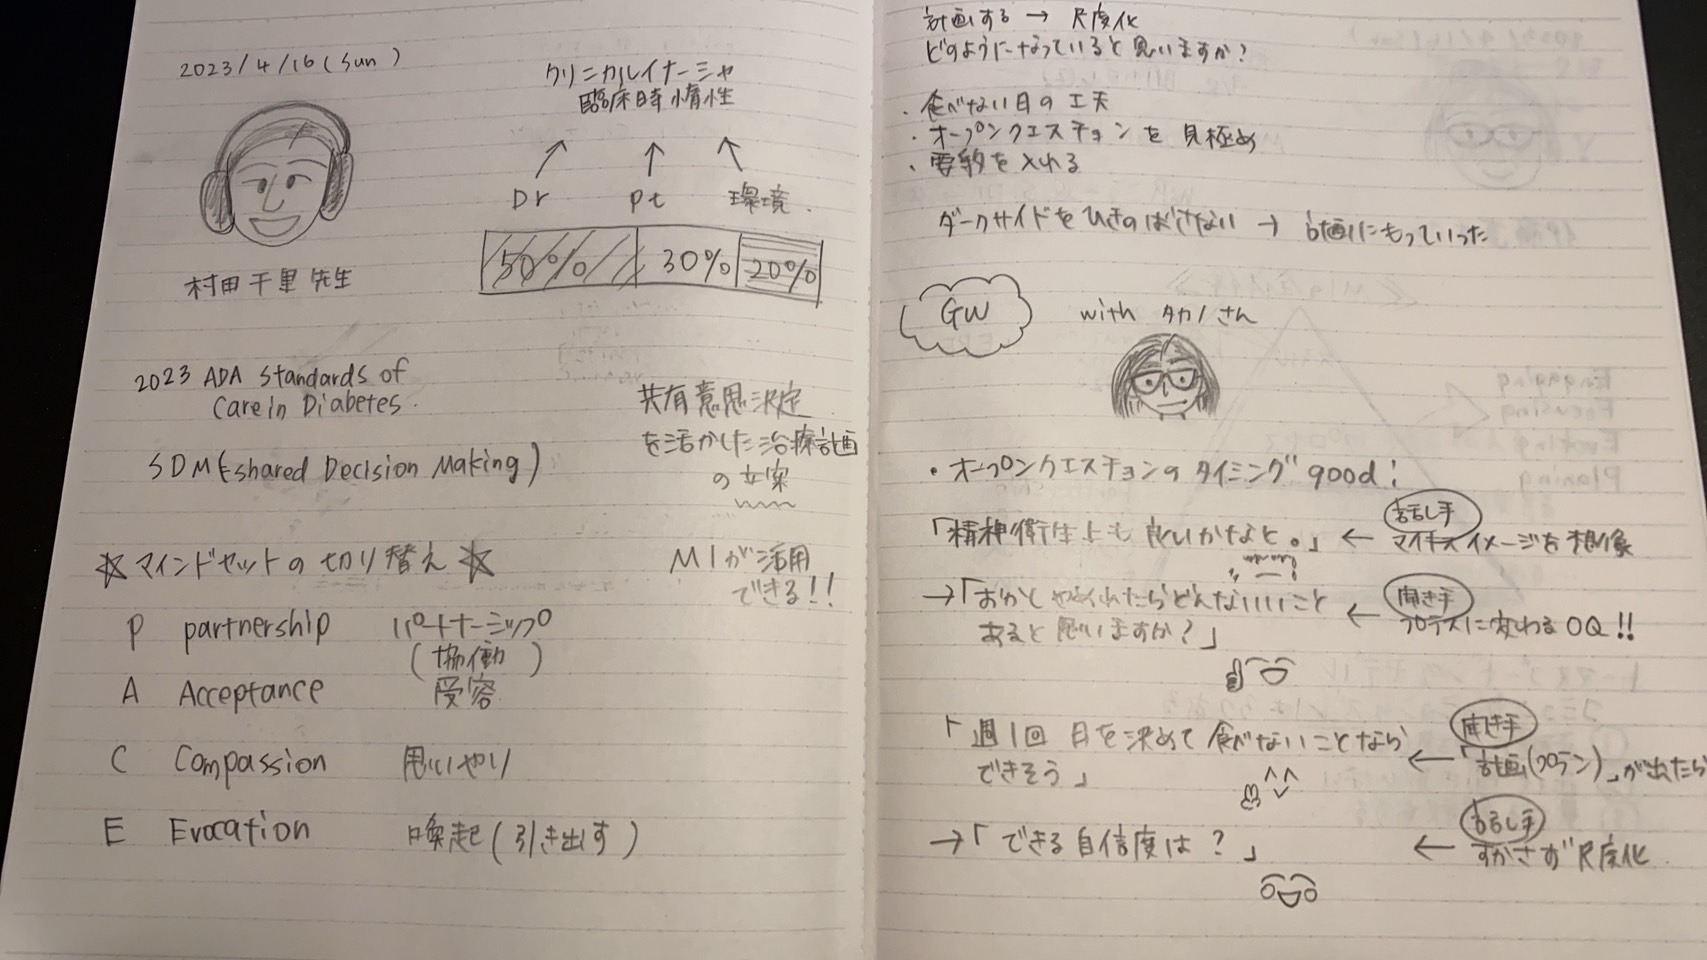 2023/4/16(Sun)
クリニカルイナーシャ
臨床時惰性
Dr
pt
環境
50%
30%
20%
村田千里先生
2023 ADA Standards of
Care in Diabetes.
SDM(shared Decision Making)
共有意思決定
を活かした治療計画
の立案
☆マインドセットの切り替え☆
MIが活用
できる!!
P partnership パートナーシップ
(協働)
A Acceptance 受容
C Compassion 思いやり
E Evocation 喚起(引き出す)
計画する → 尺度化
どのようになっていると思いますか?
・食べない日の工夫
・オープンクエスチョンを見極め
・要約を入れる
ダークサイドをひきのばさない → 計画にもっていった
GW
with タカノさん
・オープンクエスチョンのタイミング good!
「精神衛生上も良いかなと。」 ← 話し手
マイナスイメージを想像
→「おかしやめれたらどんないいこと
あると思いますか?」 ← 聞き手
プラスに変わるOQ!!
「週1回 日を決めて食べないことなら
できそう」 ← 聞き手
「計画(プラン)」が出たら
→「できる自信度は?」 ← 話し手
すかさず尺度化